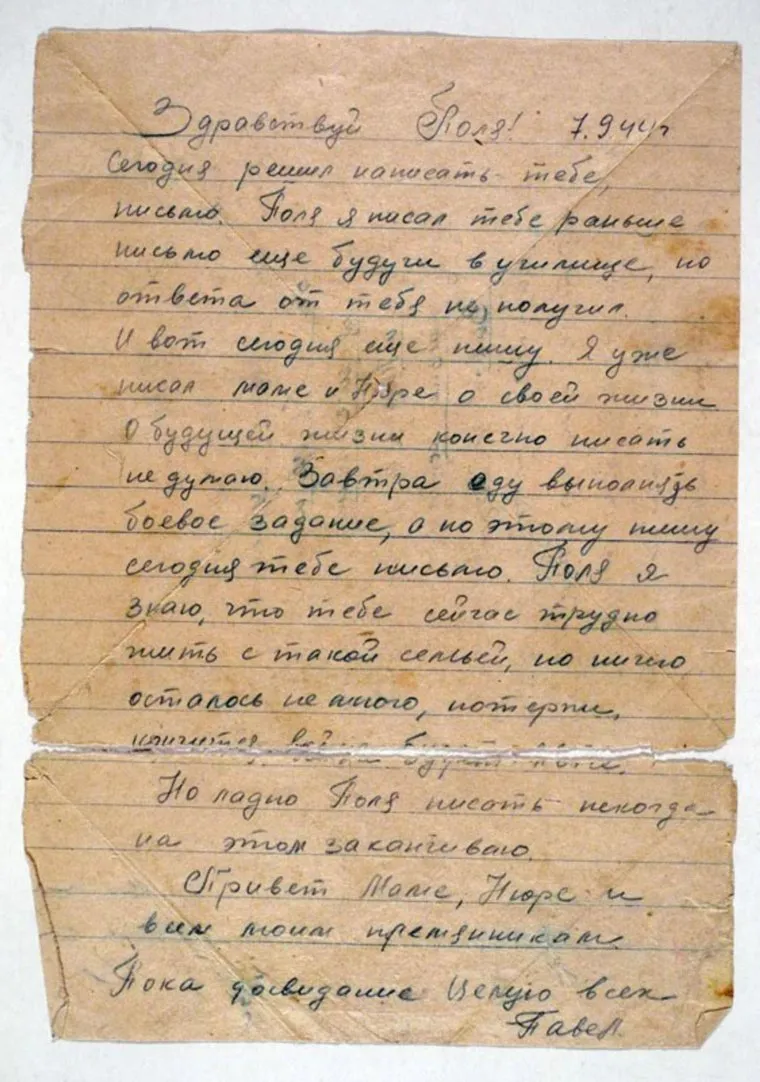 Здравствуй Поля! 7.9 44г
Сегодня решил написать тебе,
письмо. Поля я писал тебе раньше
письмо еще будучи в училище, но
ответа от тебя не получил.
И вот сегодня еще пишу. Я уже
писал маме и Нюре о своей жизни
О будущей жизни конечно писать
не думаю. Завтра еду выполнять
боевое задание, а по этому пишу
сегодня тебе письмо. Поля я
знаю, что тебе сейчас трудно
жить с такой семьей, но ничего
осталось не много, потерпи,
кончится война будет легче.
Но ладно Поля писать некогда
на этом заканчиваю.
Привет Маме, Нюре и
всем моим племянникам.
Пока досвидание Целую всех
Павел.